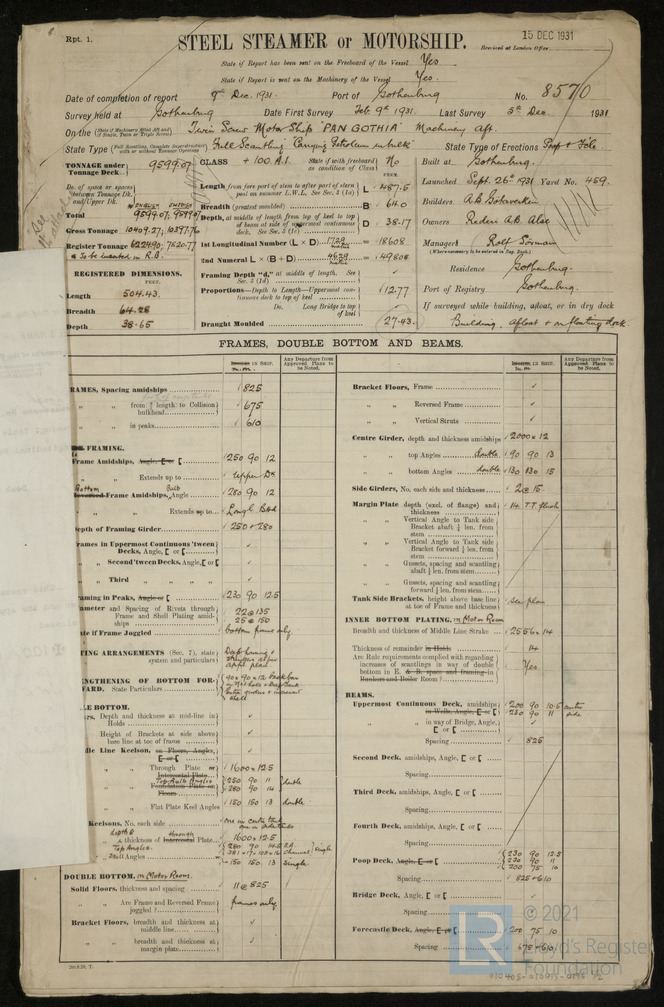 Rpt. 1.
15 DEC 1931
STEEL STEAMER or MOTORSHIP.
Received at London Office
State if Report has been sent on the Freeboard of the Vessel Yes
State if Report is sent on the Machinery of the Vessel Yes.
Date of completion of report 9th Dec. 1931. Port of Gothenburg No. 8570
Survey held at Gothenburg Date First Survey Feb. 9th 1931. Last Survey 5th Dec. 1931
On the Twin Screw Motor Ship "PAN GOTHIA" Machinery Aft.
State Type Full Scantling Carrying Petroleum in bulk State Type of Erections Poop & Fcle
TONNAGE under Tonnage Deck 9599.07
CLASS +100.A.1. State if with freeboard as condition of Class No
Built at Gothenburg.
Launched Sept. 26th 1931 Yard No. 459.
Builders A.B. Götaverken
Owners Rederi A.B. Alse
Managers Rolf Sörman
Residence Gothenburg.
Port of Registry Gothenburg.
If surveyed while building, afloat, or in dry dock
Building, afloat & on floating dock.
Do. of space or spaces between Tonnage Dk. and Upper Dk.
Total 9599.07; 9599.07
Gross Tonnage 10409.27; 10397.76
Register Tonnage 6224.90; 7620.77
To be inserted in R.B.
REGISTERED DIMENSIONS.
FEET.
Length 504.43.
Breadth 64.25
Depth 38.65
Length from fore part of stem to after part of stern post on summer L.W.L. See Sec. 3 (1a) L 487.5
Breadth (greatest moulded) B 64.0
Depth, at middle of length from top of keel to top of beam at side of uppermost continuous deck. See Sec. 3 (1c) D 38.17
1st Longitudinal Number (L × D) = 18608
2nd Numeral L × (B + D) = 49808
Framing Depth "d," at middle of length. See Sec. 3 (1d)
Proportions—Depth to Length—Uppermost continuous deck to top of keel 12.77
Do. Long Bridge to top of keel
Draught Moulded 27.43.
FRAMES, DOUBLE BOTTOM AND BEAMS.
Any Departure from Approved Plans to be Noted.
Any Departure from Approved Plans to be Noted.
RAMES, Spacing amidships 825
" " from ⅕ length to Collision bulkhead 675
" " in peaks 610
FRAMING.
Frame Amidships, Angle, E or [ 250 90 12
" " Extends up to Upper Dk
Bottom Frame Amidships, Bulb Angle 280 90 12
" " Extends up to Longl Bhd
Depth of Framing Girder 250 & 280
Frames in Uppermost Continuous 'tween Decks, Angle, [ or [
" " Second 'tween Decks, Angle, [ or [
" " Third " " " "
Framing in Peaks, Angle or [ 230 90 12.5
ameter and Spacing of Rivets through Frame and Shell Plating amidships 22 @ 135
25 @ 150
ate if Frame Joggled bottom frame only
TING ARRANGEMENTS (Sec. 7), state system and particulars
ENGTHENING OF BOTTOM FORWARD. State Particulars
LE BOTTOM.
rs, Depth and thickness at mid-line in Holds
Height of Brackets at side above base line at toe of frame
dle Line Keelson, on Floors, Angles, E or [
" " Through Plate or Intercostal Plate 1600 × 12.5
" " Top Bulb Angles Foundation Plate on Floors 250 90 11
280 90 14 double
" " Flat Plate Keel Angles 150 150 13 double
Keelsons, No. each side
depth & thickness of through Intercostal Plate 1600 × 12.5
Top Angles.
Angles 150 150 13 single
DOUBLE BOTTOM, in Motor Room.
Solid Floors, thickness and spacing 11 @ 825
" " Are Frame and Reversed Frame joggled? frames only
Bracket Floors, breadth and thickness at middle line
" " breadth and thickness at margin plate
Bracket Floors, Frame
" " Reversed Frame
" " Vertical Struts
Centre Girder, depth and thickness amidships 2000 × 12
" " top Angles double 90 90 13
" " bottom Angles double 130 130 15
Side Girders, No. each side and thickness 2 @ 15
Margin Plate depth (excl. of flange) and thickness 14. T.T. flush
" " Vertical Angle to Tank side Bracket abaft ¼ len. from stem
" " Vertical Angle to Tank side Bracket forward ¼ len. from stem
" " Gussets, spacing and scantling abaft ¼ len. from stem
" " Gussets, spacing and scantling forward ¼ len. from stem
Tank Side Brackets, height above base line at toe of Frame and thickness see plan
INNER BOTTOM PLATING, in Motor Room
Breadth and thickness of Middle Line Strake 2556 × 14
Thickness of remainder in Holds 14
Are Rule requirements complied with regarding increases of scantlings in way of double bottom in E. & B. space and framing in Bunkers and Boiler Room? Yes
BEAMS.
Uppermost Continuous Deck, amidships in Wells, Angle, E or [ 200 90 10.5 centre
230 90 11 side
" " in way of Bridge, Angle, [ or [
Spacing 825
Second Deck, amidships, Angle, [ or [
Spacing
Third Deck, amidships, Angle, [ or [
Spacing
Fourth Deck, amidships, Angle, [ or [
Spacing
Poop Deck, Angle, E or [ 230 90 12.5
230 90 11
200 75 10
Spacing 825 & 610
Bridge Deck, Angle, [ or [
Spacing
Forecastle Deck, Angle, E or [ 200 75 10
Spacing 675 & 610
© 2021
Lloyd's Register
Foundation
LR